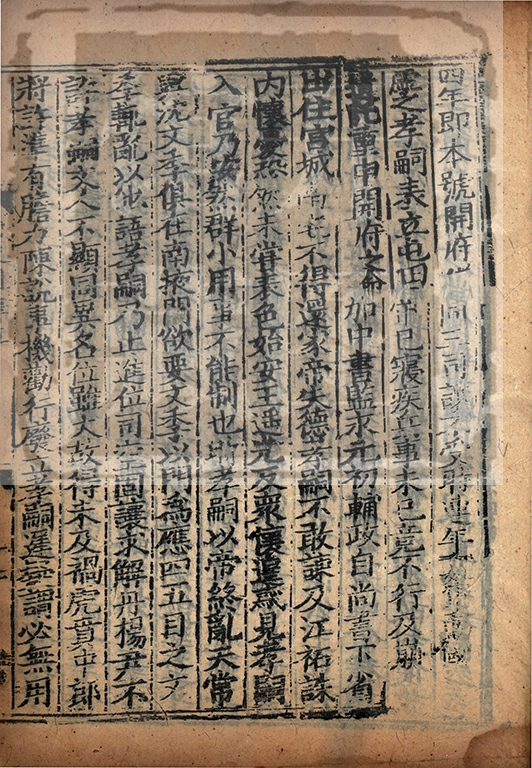 四年即本號開府同三司讓不受時連年
虛乏孝嗣表立屯田帝已寢疾兵事未已竟不行及崩
重申開府之命加中書監永元初輔政自尚書下省
出住宮城南宅不得還家帝失德孝嗣不敢諫及江祏誅
内懷憂恐然未嘗表色始安王遥光反衆懷遑惑見孝嗣
入宫乃安然群小用事不能制也時孝嗣以帝終亂天常
與沈文季俱在南掖門欲要文季以門爲應四五目之文
季輒亂以他語孝嗣乃止進位司空固讓求解丹楊尹不
許孝嗣文人不顯同異名位雖大故得未及禍虎賁中郎
將許準有膽力陳説事機勸行廢立孝嗣遲疑謂必無用